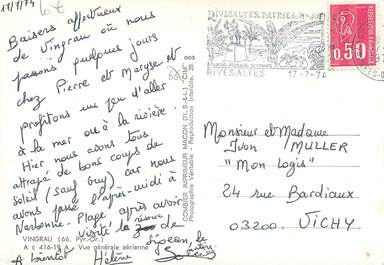 17/7/74
Baisers affectueux
de Vingrau où nous
passons quelques jours
chez Pierre et Maryse et
profitons un peu d'aller
à la mer ou à la rivière.
Hier nous avons tous
attrapé de bons coups de
soleil (sauf Guy) car nous
avons passé l'après-midi à
Narbonne-Plage après avoir
visité la réserve de
Sigean.
A bientôt Hélène
VINGRAU (66. Pyr.-Or.)
A c 416-19 A - Vue générale aérienne
COMBIER IMPRIMEUR MACON (71. - S.-&-L.) "CIM"
Photographie Véritable - Reproduction Interdite
RIVESALTES
17-7-74
0,50
Monsieur et Madame
MULLER
"Mon Logis"
24 rue Bardiaux
03200. VICHY